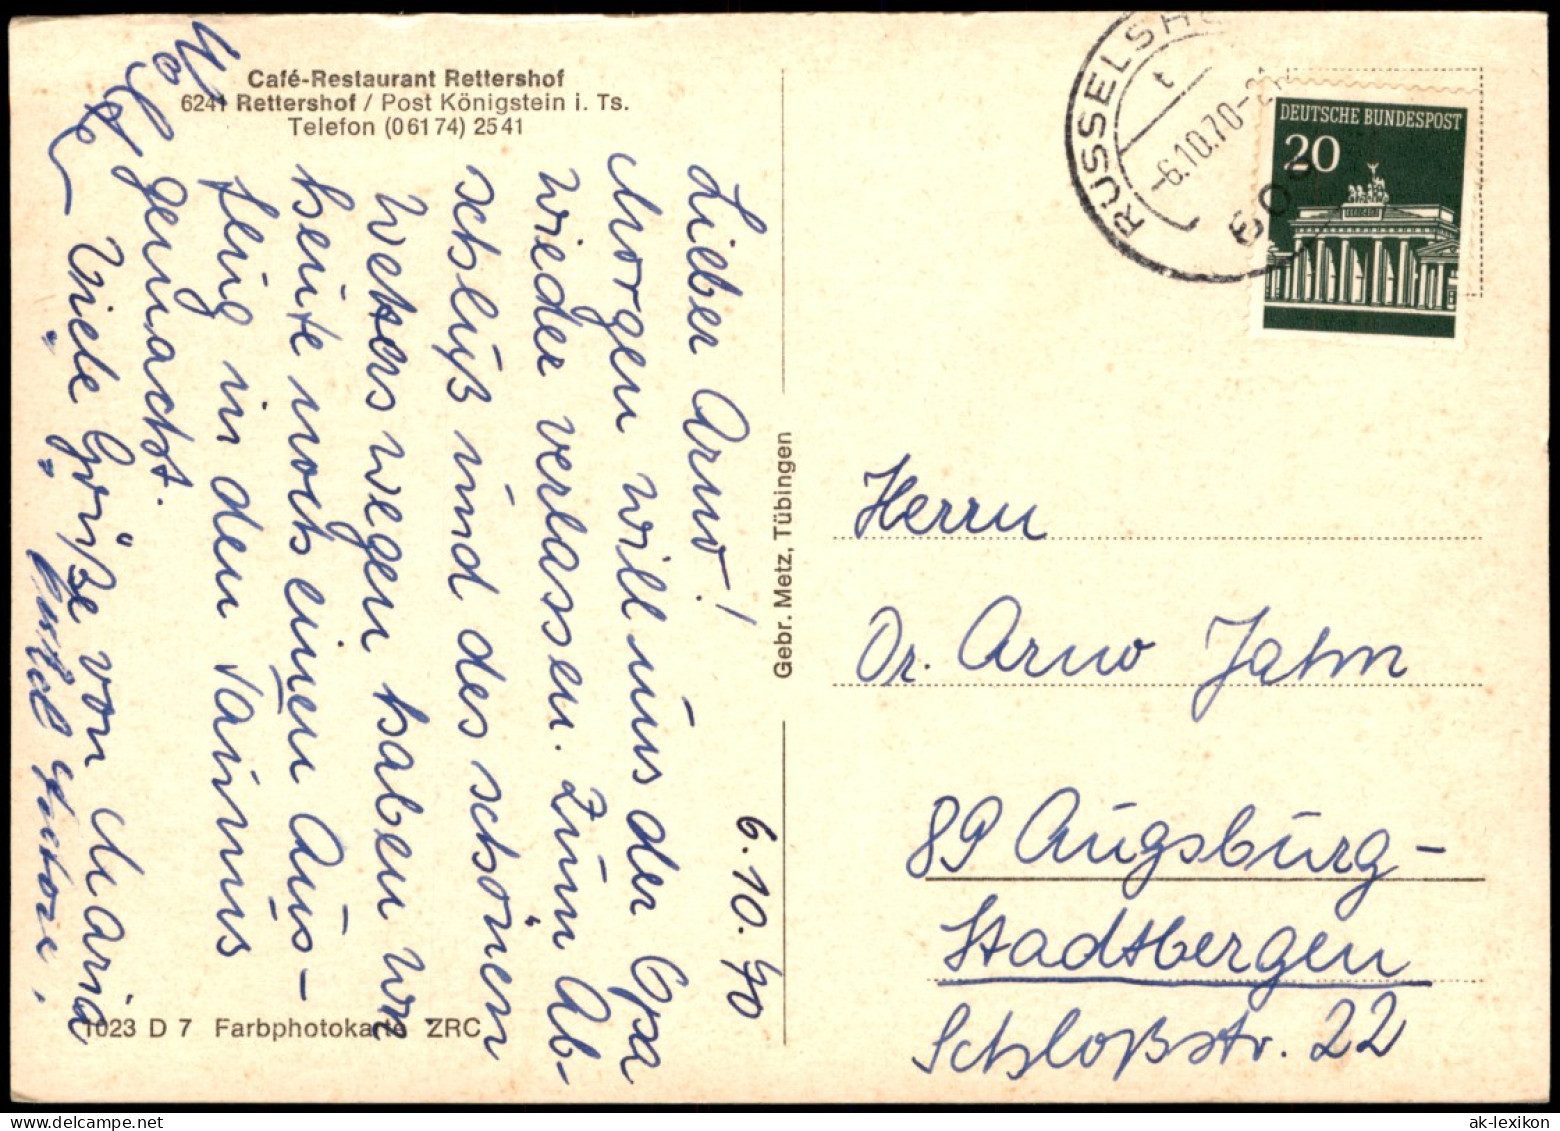 Café-Restaurant Rettershof
6241 Rettershof / Post Königstein i. Ts.
Telefon (06174) 2541
6.10.70
Lieber Arno!
Morgen will uns der Opa
wieder verlassen. Zum Ab-
schluß und des schönen
Wetters wegen haben wir
heute noch einen Aus-
flug in den Taunus
gemacht.
Viele Grüße von Maria
1023 D 7 Farbphotokarte ZRC
Gebr. Metz, Tübingen
RÜSSELSH
-6.10.70-2
DEUTSCHE BUNDESPOST
20
Herrn
Dr. Arno Jahn
89 Augsburg-
Stadtbergen
Schloßstr. 22
ak-lexikon